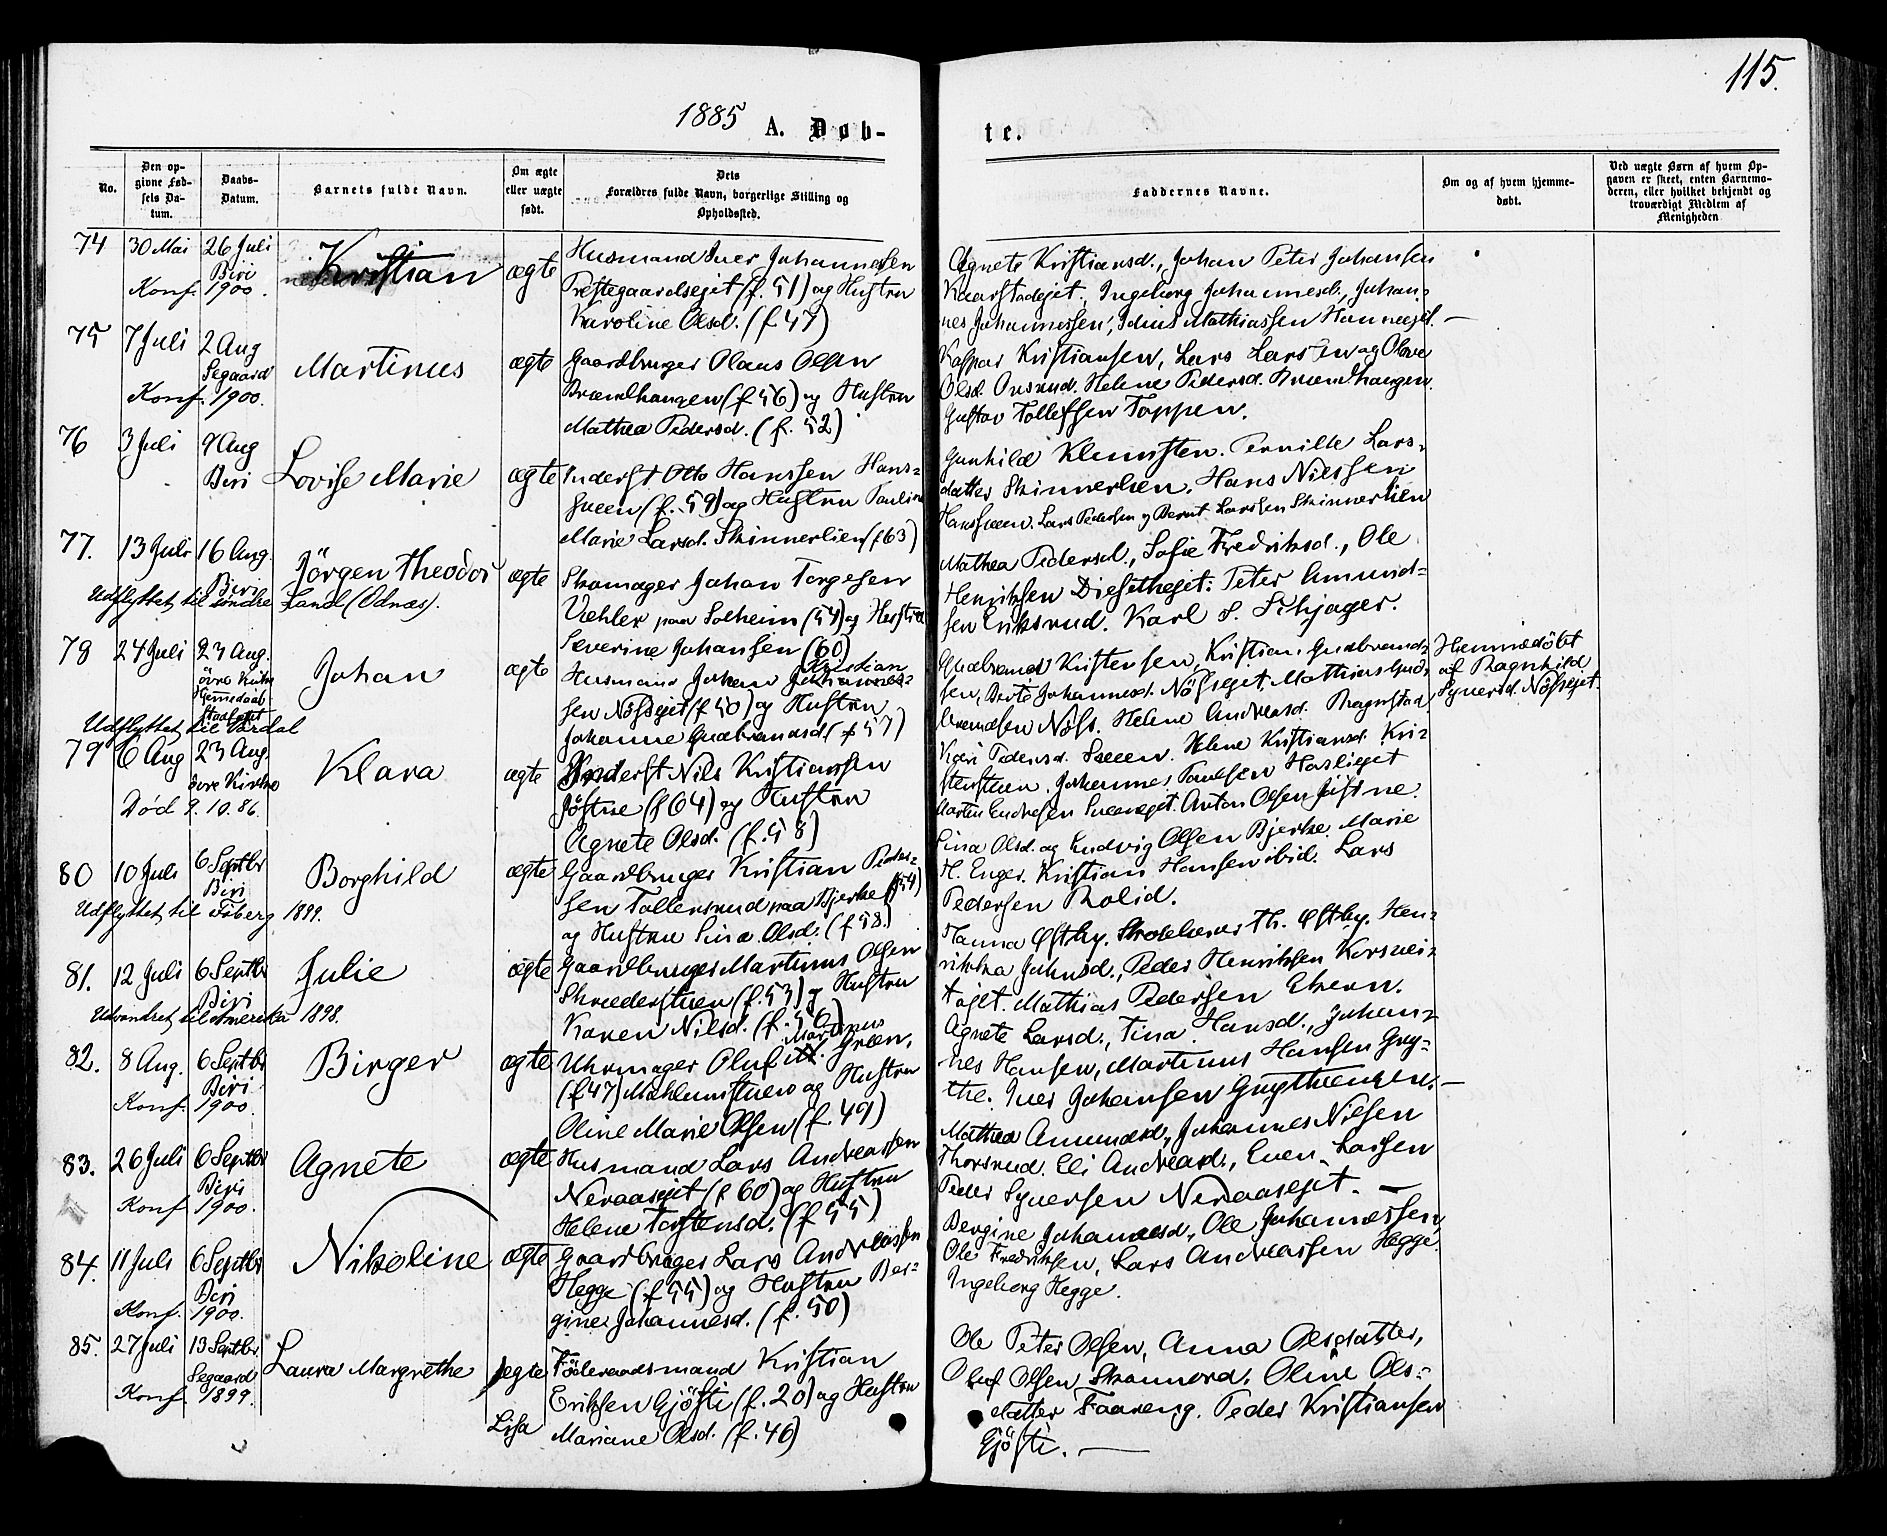 115.
1885 A. Døb-
te.
No.
Den op-
givne Fød-
sels Da-
tum.
Daabs-
Datum.
Barnets fulde Navn.
Om ægte
eller uægte
født.
Dets
Forældres fulde Navn, borgerlige Stilling og
Opholdssted.
Faddernes Navne.
Om og af hvem hjemme-
døbt.
Ved uægte Børn af hvem Op-
gaven er skeet, enten Barnemo-
deren, eller hvilket bekjendt og
troværdigt Medlem af
Menigheden
74 30 Mai 26 Juli Kristian ægte
Biri
Konf. 1900.
Husmand Iver Johannessen
Prestegaardseget (f. 51) og Hustru
Karoline Olsd. (f 47)
Agnete Kristiansd., Johan Peter Johansen
Kaarstadeget. Ingeborg Johannesd., Johan-
nes Johannessen, Idius Mathiassen Hanneget. —
75 7 Juli 2 Aug Martinus ægte
Segaard
Konf. 1900.
Gaardbruger Olaus Olsen
Brændhaugen (f 56) og Hustru
Mathea Pedersd. (f. 52)
Kaspar Kristiansen, Lars Larssen og Olave
Olsd. Onsrud. Helene Pedersd. Brændhaugen.
Gustav Tollefsen Toppen.
76 3 Juli 9 Aug Lovise Marie ægte
Biri
Inderst Otto Hanssen Hans-
sveen (f. 59) og Hustru Pauline
Marie Larsd. Skinnerlien (f 63)
Gunhild Klemisten. Pernille Lars-
datter Skinnerlien. Hans Nilssen
Hanssveen. Lars Pedersen og Bernt Larssen Skinnerlien
77. 13 Juli 16 Aug. Jörgen Theodor ægte
Biri
Udflyttet til söndre Land (Odnæs).
Skomager Johan Torgersen
Væhler paa Solheim (54) og Hustru
Severine Johansen (60)
Mathea Pedersd., Sofie Fredriksd., Ole
Henriksen Diesetheget. Peter Amund-
sen Eriksrud. Karl S. Skjager.
78 24 Juli 23 Aug. Johan ægte
övre Kirke
Hjemmedaab
stadfæstet
Udflyttet til Vardal
Kristian
Husmand Johan Johannes-
sen Nösseget (f 50) og Hustru
Johanne Gudbrandsd. (f 57)
Gudbrand Kristensen, Kristian Gudbrand-
sen, Berte Johannesd. Nösseget. Mathias Gud-
brandsen Nöss. Helene Andreasd. Bragerstad
Hjemmedöbt
af Ragnhild
Syversd. Nösseget.
79 6 Aug 23 Aug. Klara ægte
övre Kirke
Död 9.10.86.
Inderst Nils Kristianssen
Jöstne (f 64) og Hustru
Agnete Olsd. (f. 58)
Kari Pedersd. Sveen. Helene Kristiansd. Kri-
stenstuen. Johannes Paulsen Haslieget
Martin Endresen Sveeneget. Anton Olsen Jöstne.
80 10 Juli 6 Septbr Borghild ægte
Biri
Udflyttet til Faberg 1899.
Gaardbruger Kristian Peder-
sen Tollersrud paa Bjerke (f 54)
og Hustru Sina Olsd. (f 58.)
Sina Olsd. og Ludvig Olsen Bjerke. Marie
H. Enger. Kristian Hansen ibid. Lars
Pedersen Rolid.
81. 12 Juli 6 Septbr Julie ægte
Biri
Udvandret til Amerika 1898.
Gaardbruger Martinus Olsen
Skrædderstuen (f. 53) og Hustru
Karen Nilsd. (f. 56)
Hanna Østby. Th. Østby. Hen-
rikka Johnsd., Peder Henriksen Korsvei-
eget. Mathias Pedersen Ekern.
82. 8 Aug. 6 Septbr Birger ægte
Biri
Konf. 1900.
Martinus
Uhrmager Oluf Græn,
(f 47) Mæhlumstuen og Hustru
Oline Marie Olsen (f 49)
Agnete Larsd., Tina Hansd., Johan-
nes Hansen, Martinus Hansen Gry-
the. Iver Johansen Grytheengen. —
83. 26 Juli 6 Septbr Agnete ægte
Biri
Konf 1900.
Husmand Lars Andreassen
Neraaseget (f 60) og Hustru
Helene Torstensd. (f 55)
Mathea Amundsd., Johannes Nilsen
Thorsrud. Eli Andreasd., Even Larsen
Peder Syversen Neraaseget. —
84. 11 Juli 6 Septbr Nikoline ægte
Biri
Konf. 1900.
Gaardbruger Lars Andreassen
Hegge (f 55) og Hustru Ber-
gine Johannesd. (f. 50)
Bergine Johannesd., Ole Johannessen
Ole Fredriksen, Lars Andreassen Hegge.
Ingeborg Hegge.
85. 27 Juli 13 Septbr Laura Margrethe ægte
Segaard
Konf. 1899.
Föderaadsmand Kristian
Eriksen Gjösti (f. 20) og Hustru
Lisa Mariane Olsd. (f. 46)
Ole Peter Olsen, Anna Olsdatter,
Oluf Olsen Skonnord. Oline Ols-
datter Faareng. Peder Kristiansen
Gjösti. —